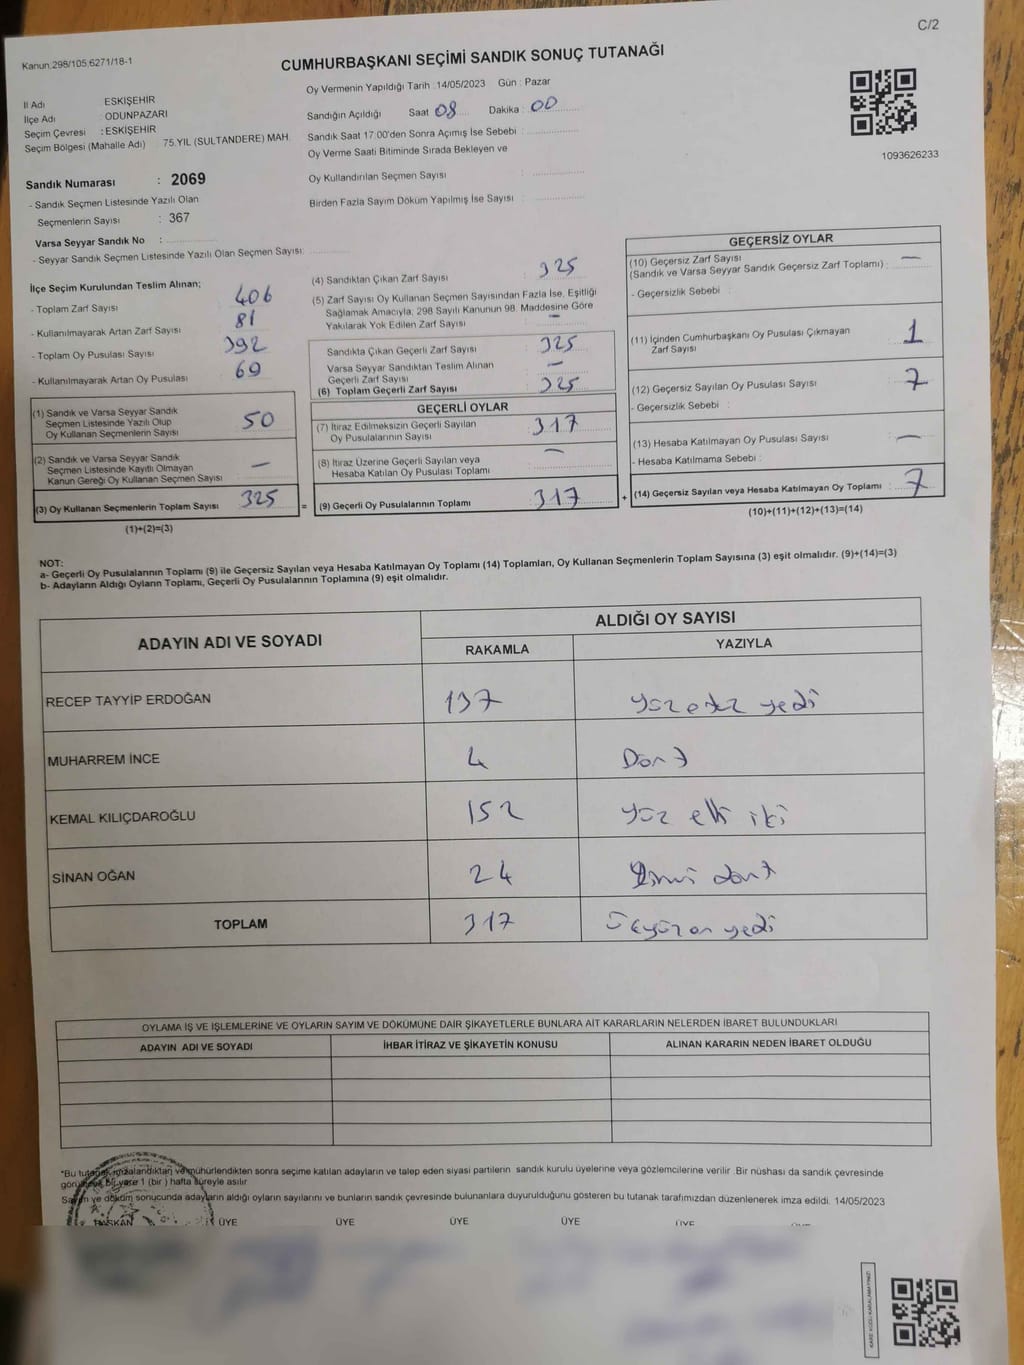 C/2
Kanun:298/105,6271/18-1
CUMHURBAŞKANI SEÇİMİ SANDIK SONUÇ TUTANAĞI
İl Adı ESKİŞEHİR
İlçe Adı : ODUNPAZARI
Seçim Çevresi : ESKİŞEHİR
Seçim Bölgesi (Mahalle Adı) : 75.YIL (SULTANDERE) MAH.
Sandık Numarası : 2069
- Sandık Seçmen Listesinde Yazılı Olan
Seçmenlerin Sayısı : 367
Varsa Seyyar Sandık No :
- Seyyar Sandık Seçmen Listesinde Yazılı Olan Seçmen Sayısı:
Oy Vermenin Yapıldığı Tarih :14/05/2023 Gün : Pazar
Sandığın Açıldığı Saat 08 Dakika : 00
Sandık Saat 17:00'den Sonra Açımış İse Sebebi :
Oy Verme Saati Bitiminde Sırada Bekleyen ve
Oy Kullandırılan Seçmen Sayısı :
Birden Fazla Sayım Döküm Yapılmış İse Sayısı :
1093626233
İlçe Seçim Kurulundan Teslim Alınan;
- Toplam Zarf Sayısı 406
- Kullanılmayarak Artan Zarf Sayısı 81
- Toplam Oy Pusulası Sayısı 392
- Kullanılmayarak Artan Oy Pusulası 69
(1) Sandık ve Varsa Seyyar Sandık
Seçmen Listesinde Yazılı Olup
Oy Kullanan Seçmenlerin Sayısı 50
(2) Sandık ve Varsa Seyyar Sandık
Seçmen Listesinde Kayıtlı Olmayan
Kanun Gereği Oy Kullanan Seçmen Sayısı —
(3) Oy Kullanan Seçmenlerin Toplam Sayısı 325
(1)+(2)=(3)
(4) Sandıktan Çıkan Zarf Sayısı 325
(5) Zarf Sayısı Oy Kullanan Seçmen Sayısından Fazla İse, Eşitliği
Sağlamak Amacıyla, 298 Sayılı Kanunun 98. Maddesine Göre
Yakılarak Yok Edilen Zarf Sayısı : —
Sandıkta Çıkan Geçerli Zarf Sayısı 325
Varsa Seyyar Sandıktan Teslim Alınan
Geçerli Zarf Sayısı —
(6) Toplam Geçerli Zarf Sayısı 325
GEÇERLİ OYLAR
(7) İtiraz Edilmeksizin Geçerli Sayılan
Oy Pusulalarının Sayısı 317
(8) İtiraz Üzerine Geçerli Sayılan veya
Hesaba Katılan Oy Pusulası Toplamı —
= (9) Geçerli Oy Pusulalarının Toplamı 317 +
GEÇERSİZ OYLAR
(10) Geçersiz Zarf Sayısı
(Sandık ve Varsa Seyyar Sandık Geçersiz Zarf Toplamı) : —
- Geçersizlik Sebebi :
(11) İçinden Cumhurbaşkanı Oy Pusulası Çıkmayan
Zarf Sayısı 1
(12) Geçersiz Sayılan Oy Pusulası Sayısı : 7
- Geçersizlik Sebebi :
(13) Hesaba Katılmayan Oy Pusulası Sayısı : —
- Hesaba Katılmama Sebebi :
(14) Geçersiz Sayılan veya Hesaba Katılmayan Oy Toplamı : 7
(10)+(11)+(12)+(13)=(14)
NOT:
a- Geçerli Oy Pusulalarının Toplamı (9) ile Geçersiz Sayılan veya Hesaba Katılmayan Oy Toplamı (14) Toplamları, Oy Kullanan Seçmenlerin Toplam Sayısına (3) eşit olmalıdır. (9)+(14)=(3)
b- Adayların Aldığı Oyların Toplamı, Geçerli Oy Pusulalarının Toplamına (9) eşit olmalıdır.
ADAYIN ADI VE SOYADI ALDIĞI OY SAYISI
RAKAMLA YAZIYLA
RECEP TAYYİP ERDOĞAN 137 yüz otuz yedi
MUHARREM İNCE 4 Dört
KEMAL KILIÇDAROĞLU 152 yüz elli iki
SİNAN OĞAN 24 Yirmi dört
TOPLAM 317 üçyüz on yedi
OYLAMA İŞ VE İŞLEMLERİNE VE OYLARIN SAYIM VE DÖKÜMÜNE DAİR ŞİKAYETLERLE BUNLARA AİT KARARLARIN NELERDEN İBARET BULUNDUKLARI
ADAYIN ADI VE SOYADI İHBAR İTİRAZ VE ŞİKAYETİN KONUSU ALINAN KARARIN NEDEN İBARET OLDUĞU
*Bu tutanak imzalandıktan ve mühürlendikten sonra seçime katılan adayların ve talep eden siyasi partilerin sandık kurulu üyelerine veya gözlemcilerine verilir. Bir nüshası da sandık çevresinde
bir yere 1 (bir) hafta süreyle asılır
Sayım ve döküm sonucunda adayların aldığı oyların sayılarını ve bunların sandık çevresinde bulunanlara duyurulduğunu gösteren bu tutanak tarafımızdan düzenlenerek imza edildi. 14/05/2023
BAŞKAN ÜYE ÜYE ÜYE ÜYE ÜYE
KARE KODU KARALAMAYINIZ!